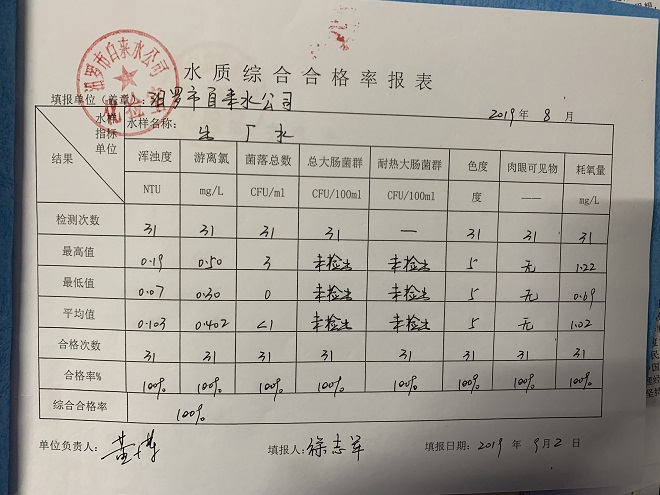 水质综合合格率报表
汨罗市自来水公司
化检室
填报单位（盖章）：汨罗市自来水公司 2019年 8 月
水样 水样名称： 出厂水
指标
单位
结果 浑浊度 游离氯 菌落总数 总大肠菌群 耐热大肠菌群 色度 肉眼可见物 耗氧量
NTU mg/L CFU/ml CFU/100ml CFU/100ml 度 —— mg/L
检测次数 31 31 31 31 — 31 31 31
最高值 0.19 0.50 3 未检出 未检出 5 无 1.22
最低值 0.07 0.30 0 未检出 未检出 5 无 0.69
平均值 0.103 0.402 <1 未检出 未检出 5 无 1.02
合格次数 31 31 31 31 31 31 31 31
合格率% 100% 100% 100% 100% 100% 100% 100% 100%
综合合格率 100%
单位负责人： 填报人：徐志军 填报日期：2019 年 9月2 日